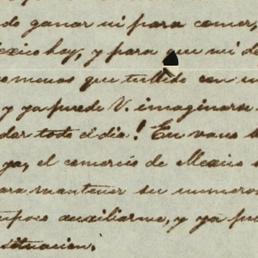 do ganar ni para comer,
exico hay, y para que mi de
o menos que tullido con u
y ya puede V. imaginarse
dar todo el dia! En vano s
ya, el comercio de Mexico
ara mantener su numero
mpoco auxiliarme, y ya pu
situacion.